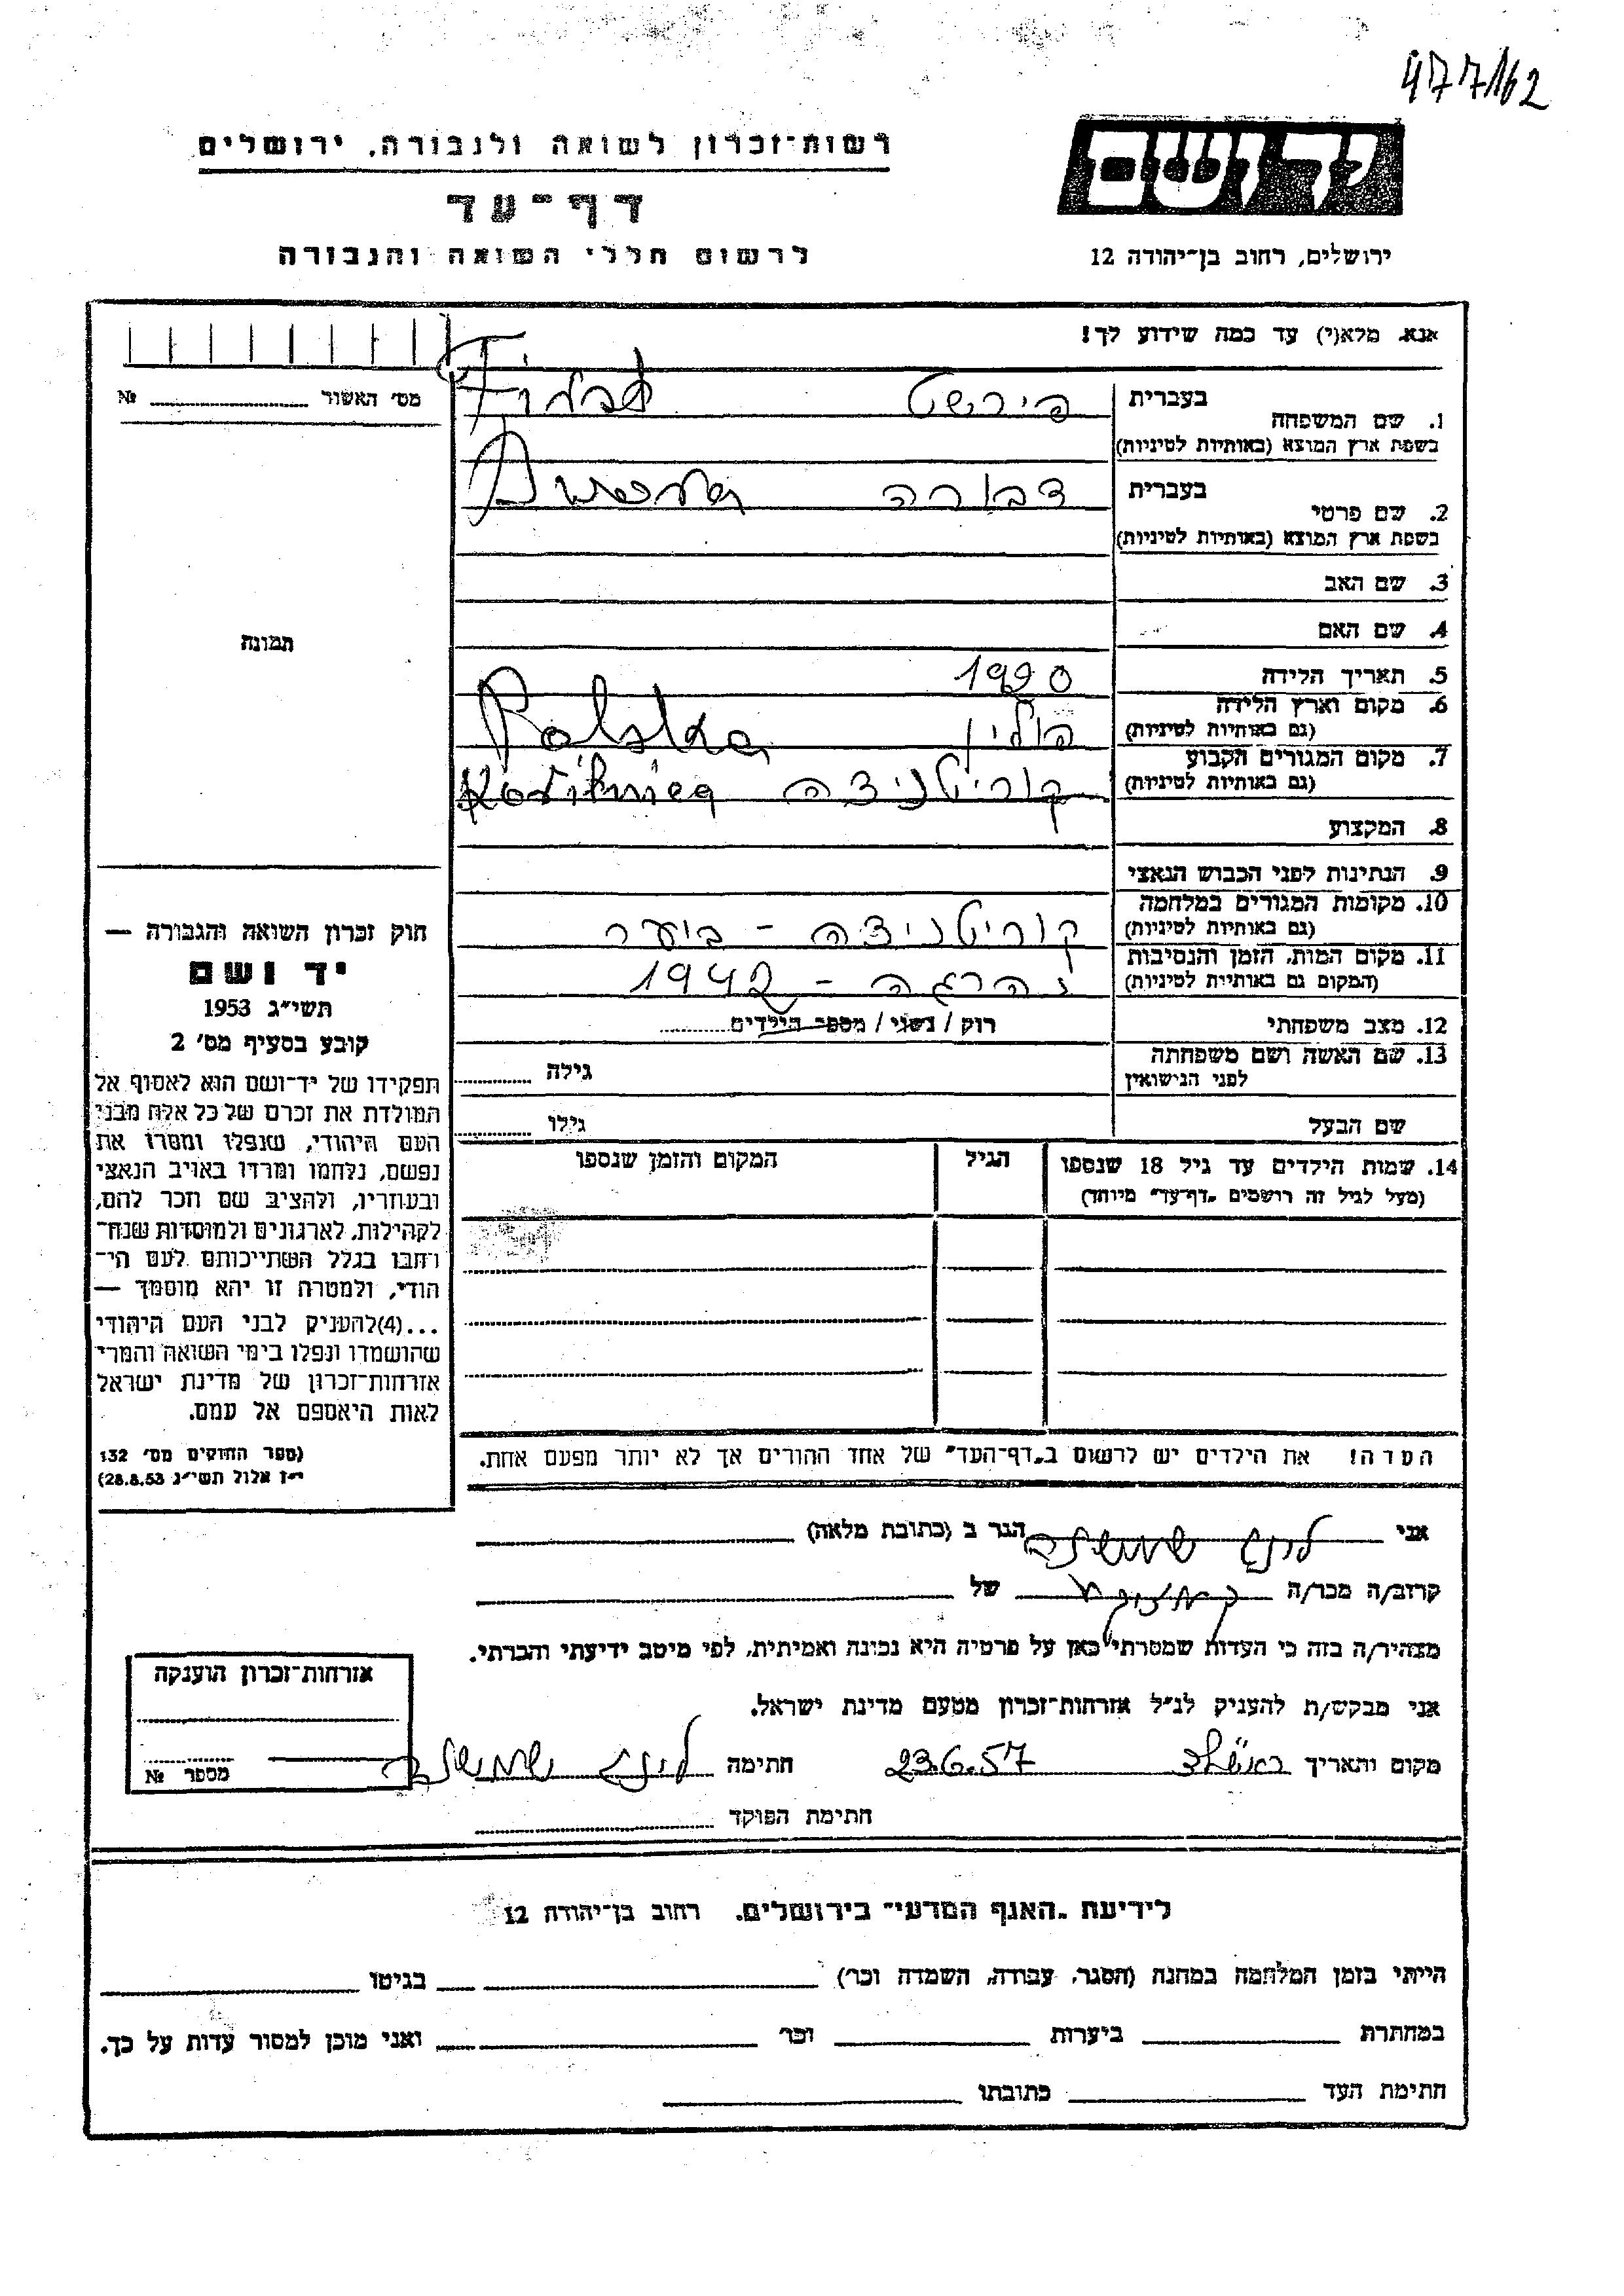 477/62
רשות־זכרון לשואה ולגבורה, ירושלים
יד ושם
דף־עד
לרשום חללי השואה והגבורה
ירושלים, רחוב בן־יהודה 12
אנא, מלא(י) עד כמה שידוע לך!
מס' האשור № 
1. שם המשפחה
בעברית פירשט
בשפת ארץ המוצא (באותיות לטיניות)
2. שם פרטי
בעברית דבורה
בשפת ארץ המוצא (באותיות לטיניות)
3. שם האב
4. שם האם
תמונה
5. תאריך הלידה 1920
6. מקום וארץ הלידה (גם באותיות לטיניות) פולין Polska
7. מקום המגורים הקבוע (גם באותיות לטיניות) קוריטניצה
8. המקצוע
9. הנתינות לפני הכבוש הנאצי
10. מקומות המגורים במלחמה (גם באותיות לטיניות) קוריטניצה - ביער
11. מקום המות, הזמן והנסיבות (המקום גם באותיות לטיניות) נהרגה - 1942
12. מצב משפחתי רוק / נשוי / מספר הילדים
13. שם האשה ושם משפחתה לפני הנישואין גילה
שם הבעל גילו
14. שמות הילדים עד גיל 18 שנספו
(מעל לגיל זה רושמים „דף־עד" מיוחד)
הגיל
המקום והזמן שנספו
חוק זכרון השואה והגבורה —
יד ושם
תשי״ג 1953
קובע בסעיף מס' 2
תפקידו של יד־ושם הוא לאסוף אל
המולדת את זכרם של כל אלה מבני
העם היהודי, שנפלו ומסרו את
נפשם, נלחמו ומרדו באויב הנאצי
ובעוזריו, ולהציב שם וזכר להם,
לקהילות, לארגונים ולמוסדות שנח־
רבו בגלל השתייכותם לעם הי־
הודי, ולמטרה זו יהא מוסמך —
...(4)להעניק לבני העם היהודי
שהושמדו ונפלו בימי השואה והמרי
אזרחות־זכרון של מדינת ישראל
לאות היאספם אל עמם.
(ספר החוקים מס' 132
י״ז אלול תשי״ג 28.8.53)
הערה! את הילדים יש לרשום ב„דף־העד" של אחד ההורים אך לא יותר מפעם אחת.
אני הגר ב (כתובת מלאה)
קרוב/ה מכר/ה של
מצהיר/ה בזה כי העדות שמסרתי כאן על פרטיה היא נכונה ואמיתית, לפי מיטב ידיעתי והכרתי.
אני מבקש/ת להעניק לנ״ל אזרחות־זכרון מטעם מדינת ישראל.
מקום ותאריך 23.6.57 חתימה
חתימת הפוקד
אזרחות־זכרון הוענקה
מספר №
לידיעת „האגף המדעי" בירושלים, רחוב בן־יהודה 12
הייתי בזמן המלחמה במחנה (הסגר, עבודה, השמדה וכו') בגיטו
במחתרת ביערות וכו' ואני מוכן למסור עדות על כך.
חתימת העד כתובתו